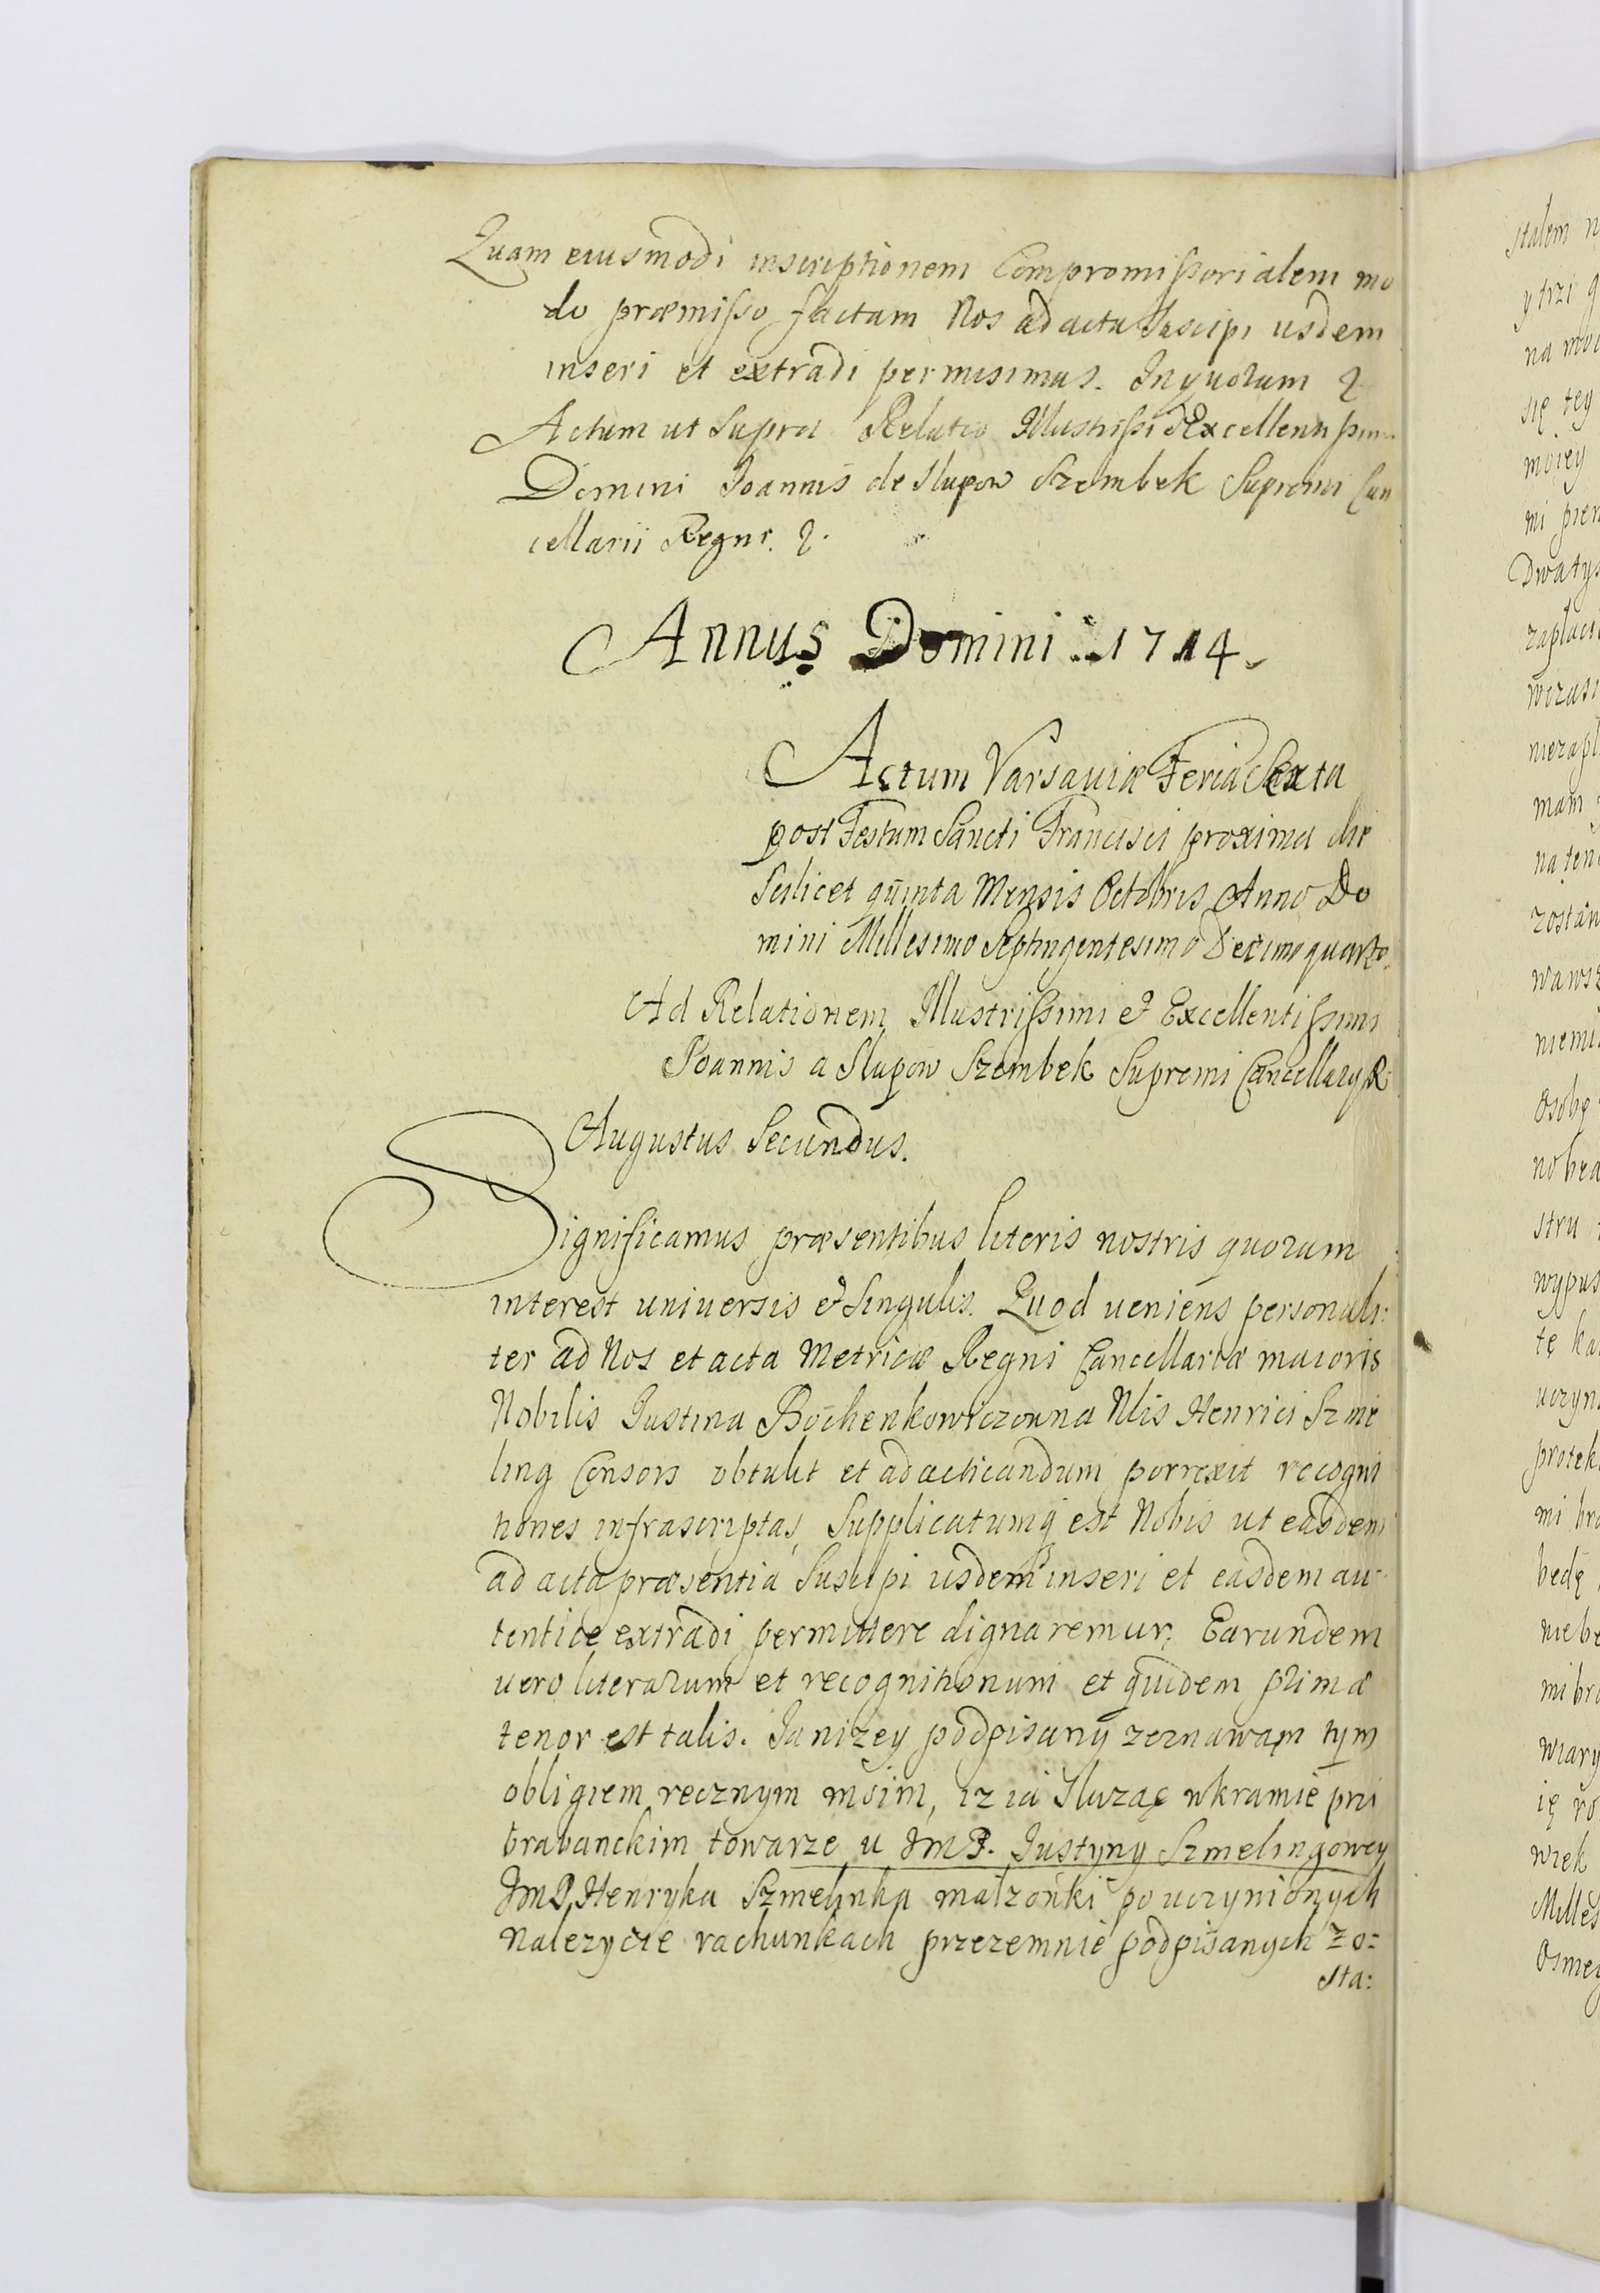 Quam eiusmodi inscriptionem Compromissorialem mo
do præmisso factam Nos ad acta Suscipi iisdem
inseri et extradi permisimus. In quorum
Actum ut Supra Relatio Illustrissi & Excellentissimi
Domini Joannis de Słupow Szembek Supremi Can
cellarii Regni.
Annus Domini 1714.
Actum Varsauiæ Feria Sexta
post Festum Sancti Francisci proxima die
Scilicet quinta Mensis Octobris Anno Do
mini Millesimo Septingentesimo Decimo quarto.
Ad Relationem Illustrissimi & Excellentissimi
Joannis a Słupow Szembek Supremi Cancellary R
Augustus Secundus.
Significamus præsentibus literis nostris quorum
interest uniuersis & Singulis. Quod ueniens personali:
ter ad Nos et acta Metricæ Regni Cancellariæ maioris
Nobilis Justina Bochenkowiczowna Nlis Henrici Szme
ling Consors obtulit et ad acticandum porrexit recogni
tiones infrascriptas, Supplicatumq est Nobis ut easdem
ad acta præsentia Suscipi iisdem inseri et easdem au
tentice extradi permittere dignaremur, Earundem
uero literarum et recognitionum et quidem primæ
tenor est talis. Ja nizey podpisany zeznawam tym
obligiem recznym moim, iz ia Słuząc w kramie przi
brabanckim towarze u JmP. Justyny Szmelingowey
JmP. Henryka Szmelinka małzonki po uczynionych
nalezycie rachunkach przezemnie podpisanych zo:
sta:
stalem
y trzi
się tey
moiey
Dwatys
mam
na ten
niemi
Osobę
stru
wypus
tę
protek
będę
wiary
wiek
Milles
Osmey